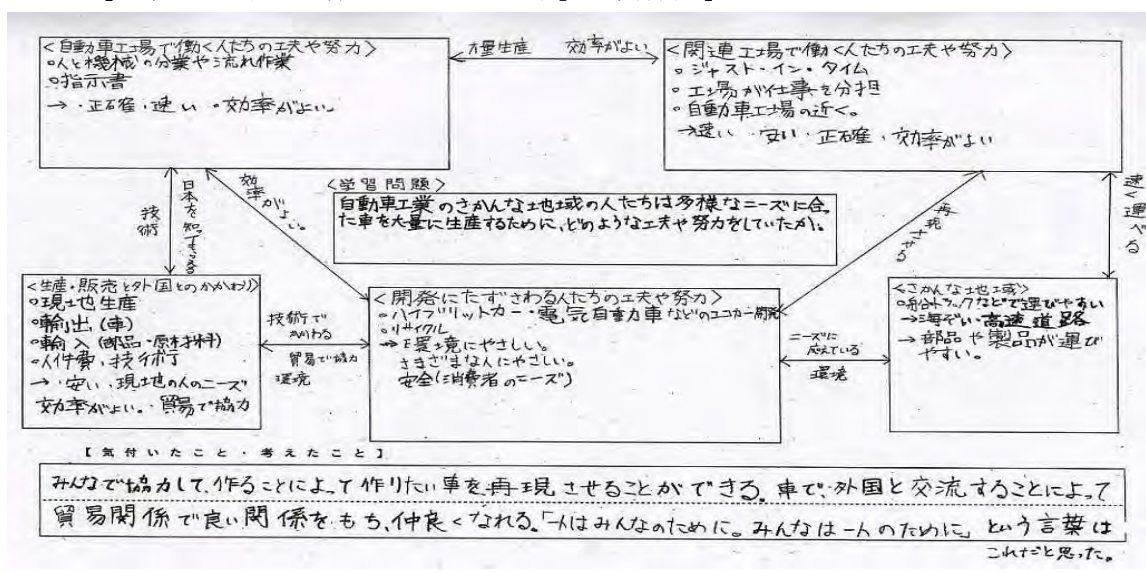 <自動車工場で働く人たちの工夫や努力>
○人と機械の分業や流れ作業
○指示書
→・正確・速い・効率がよい。
大量生産 効率がよい
<関連工場で働く人たちの工夫や努力>
○ジャスト・イン・タイム
○工場が仕事を分担
○自動車工場の近く。
→速い・安い・正確・効率がよい
技術
日本を知ってもらえる
効率がよい。
<学習問題>
自動車工業のさかんな地域の人たちは多様なニーズに合っ
た車を大量に生産するために、どのような工夫や努力をしていたか。
再現させる
速く運べる
<生産・販売と外国とのかかわり>
○現地生産
○輸出(車)
○輸入(部品・原材料)
○人件費、技術
→・安い・現地の人のニーズ
効率がよい。・貿易で協力
技術でかかわる
貿易で協力
環境
<開発にたずさわる人たちの工夫や努力>
○ハイブリットカー・電気自動車などのエコカー開発
○リサイクル
→環境にやさしい。
さまざまな人にやさしい。
安全(消費者のニーズ)
ニーズに
応えている
環境
<さかんな地域>
○船やトラックなどで運びやすい
→海ぞい・高速道路
→部品や製品が運び
やすい。
【気付いたこと・考えたこと】
みんなで協力して、作ることによって作りたい車を再現させることができる。車で、外国と交流することによって
貿易関係で良い関係をもち、仲良くなれる。「一人はみんなのために。みんなは一人のために」という言葉は
これだと思った。